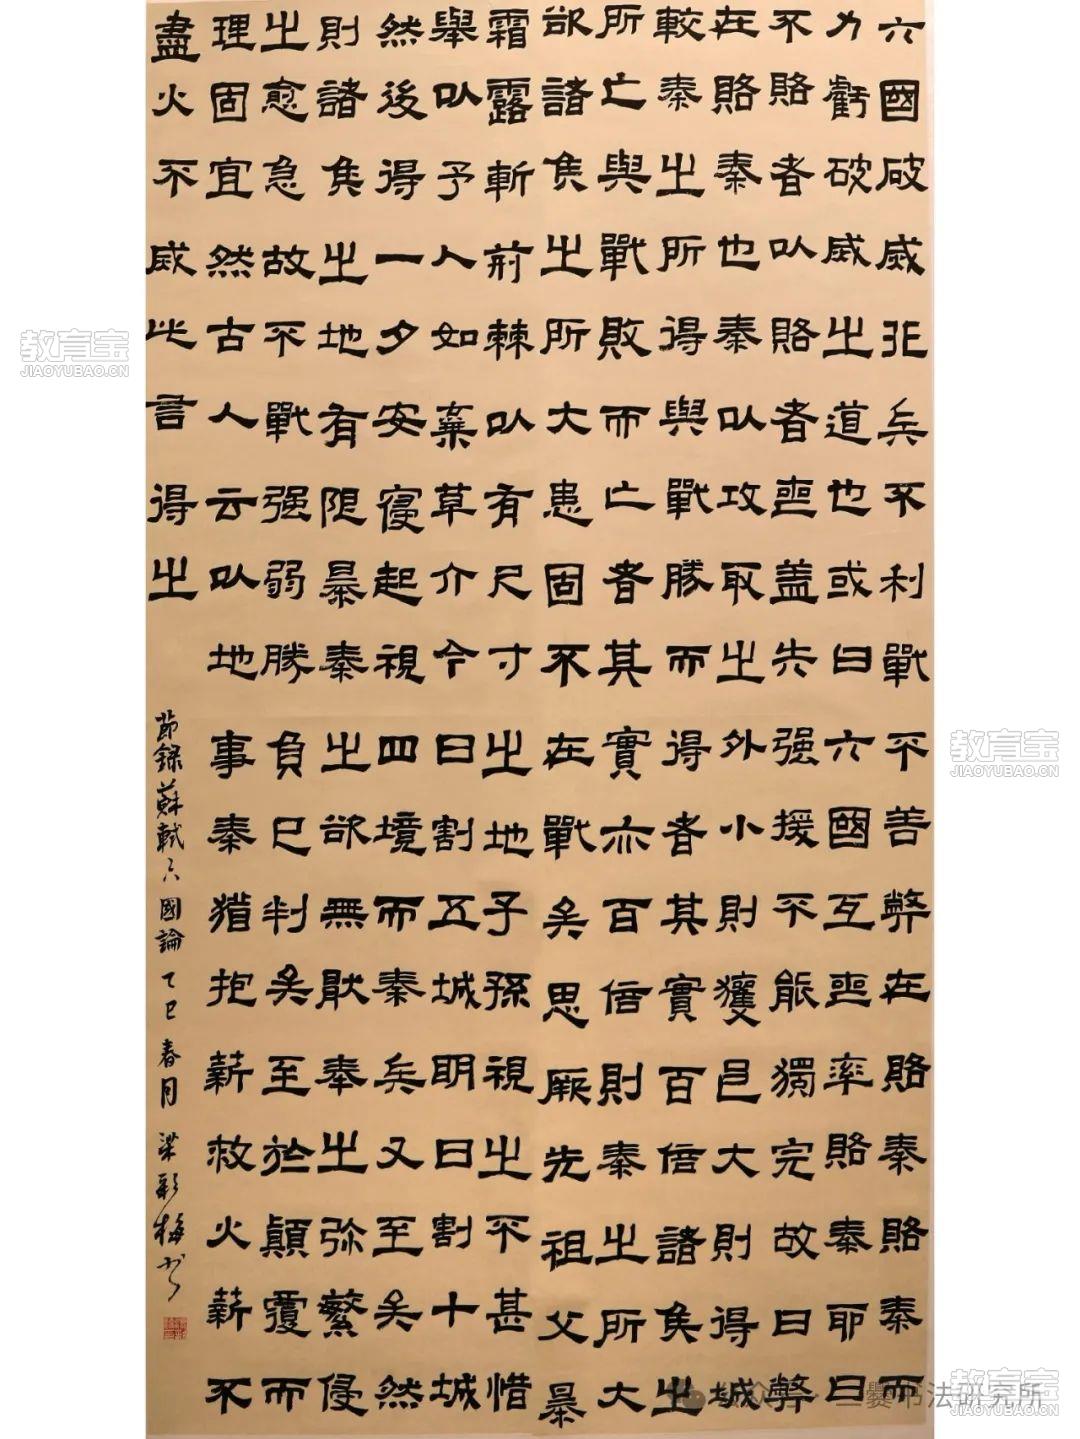 六國破烕非兵不利戰不善弊在賂秦賂秦而
力虧破烕之道也或曰六國互喪率賂秦耶曰
不賂者以賂者喪盖失强援不能獨完故曰弊
在賂秦也秦以攻取之外小則獲邑大則得城
較秦之所得與戰勝而得者其實百倍諸侯之
所亡與戰敗而亡者其實亦百倍則秦之所大
欲諸侯之所大患固不在戰矣思厥先祖父暴
霜露斬荊棘以有尺寸之地子孫視之不甚惜
舉以予人如棄草介今日割五城明日割十城
然後得一夕安寢起視四境而秦兵又至矣然
則諸侯之地有限暴秦之欲無厭奉之弥繁侵
之愈急故不戰强弱勝負已判矣至於顛覆而
理固宜然古人云以地事秦猶抱薪救火薪不
盡火不烕此言得之
節録蘇軾六國論乙巳春月梁彩梅书
教育宝
JIAOYUBAO.CN
教育宝
JIAOYUBAO.CN
教育宝
JIAOYUBAO.CN
公众号 · 三爨书法研究所